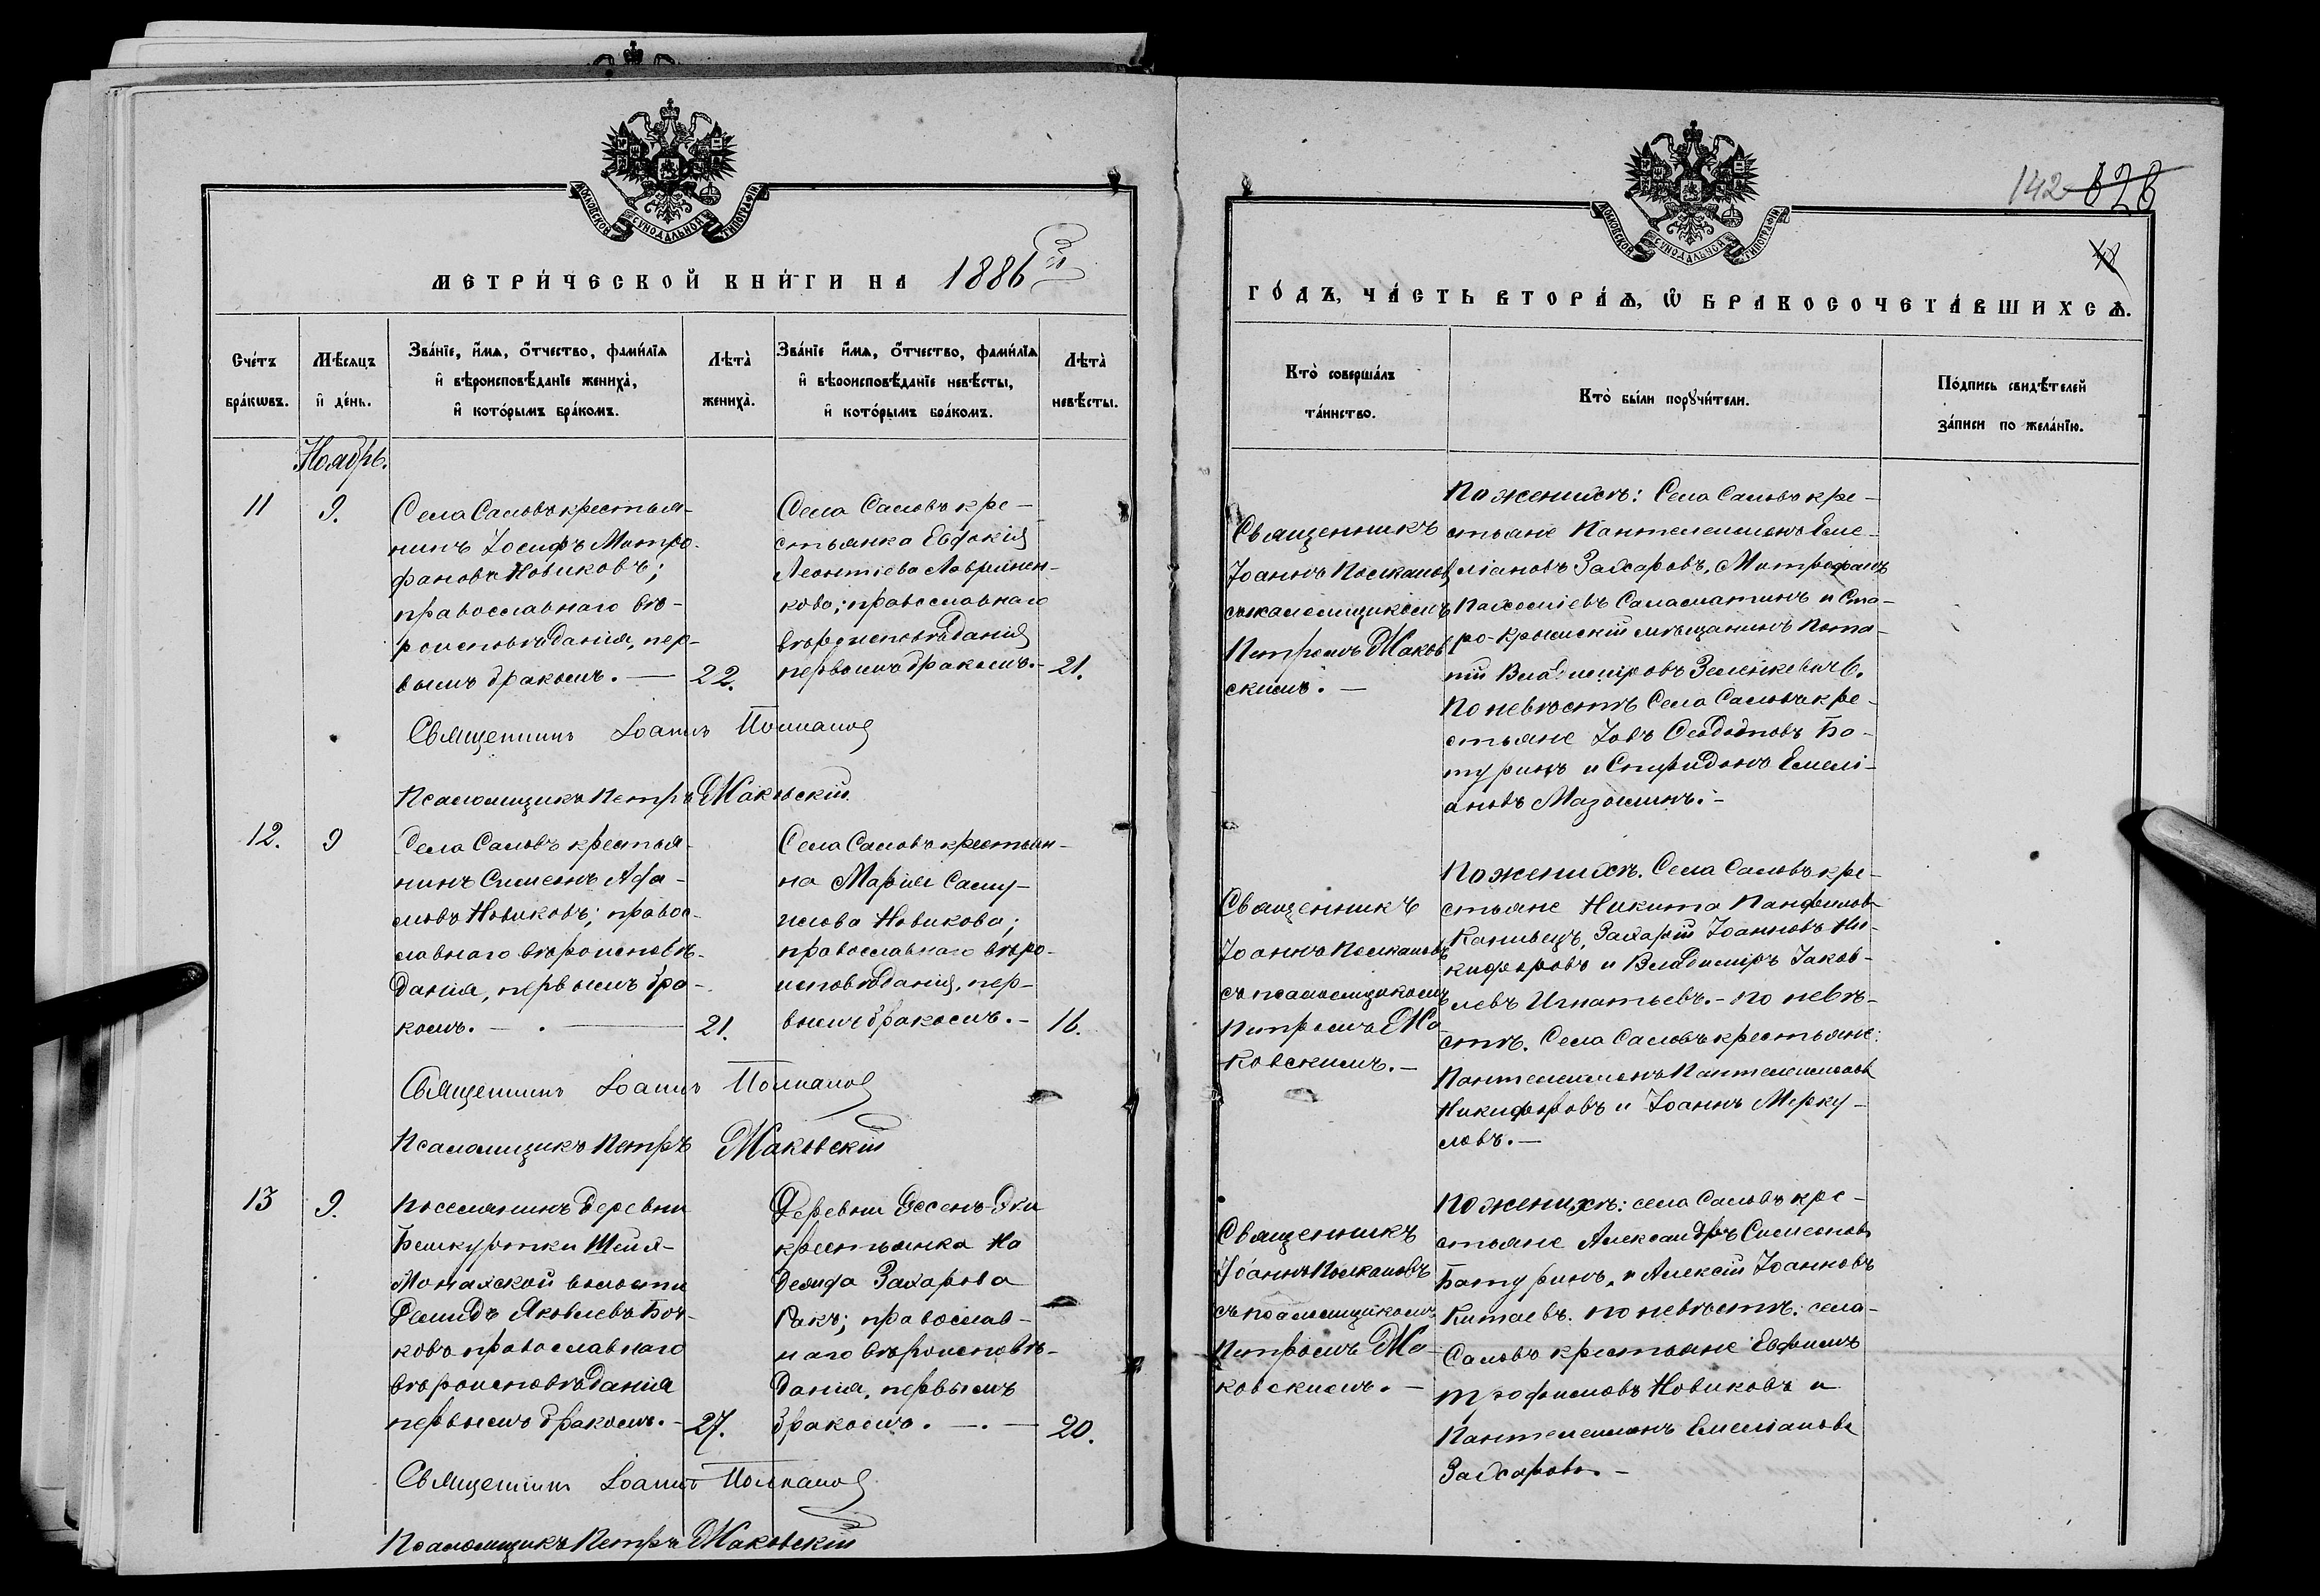 МОСКОВСКОЙ СѴНОДАЛЬНОЙ ТИПОГРАФІИ
МЕТРИ́ЧЕСКОЙ КНИ́ГИ НА 1886 й
Сче́тъ бра́кѡвъ.
Мѣ́сяцъ и҆ де́нь.
Зва́нїе, и҆́мѧ, ѻ҆́тчество, фами́лїѧ
и҆ вѣроисповѣ́данїе жениха̀,
и҆ кото́рымъ бра́комъ.
Лѣта̀
жениха̀.
Зва́нїе и҆́мѧ, ѻ҆́тчество, фами́лїѧ
и҆ вѣроисповѣ́данїе невѣ́сты,
и҆ кото́рымъ бра́комъ.
Лѣта̀
невѣ́сты.
Ноябрь.
11
9.
Села Саловъ крестья-
нинъ Іосифъ Митро-
фановъ Новиковъ;
православнаго вѣ-
роисповѣданія, пер-
вымъ бракомъ. —
22.
Села Саловъ кре-
стьянка Евдокія
Леонтіева Лавринен-
кова; православнаго
вѣроисповѣданія
первымъ бракомъ. -
21.
Священникъ Іоаннъ Полкановъ
Псаломщикъ Петръ Маковскій
12.
9
Села Саловъ крестья-
нинъ Симеонъ Афа-
новъ Новиковъ; правос-
лавнаго вѣроисповѣ-
данія, первымъ бра-
комъ. — . —
21.
Села Саловъ крестьян-
ка Марія Саму-
илова Новикова;
православнаго вѣро-
исповѣданія, пер-
вымъ бракомъ. -
16.
Священникъ Іоаннъ Полкановъ
Псаломщикъ Петръ Маковскій
13
9.
Поселянинъ деревни
Бешкуртки Шейх-
Монахской волости
Демидъ Яковлевъ Боч-
ковъ православнаго
вѣроисповѣданія
первымъ бракомъ. -
27.
Деревни Эссенъ-Эки
крестьянка На
дежда Захарова
Ракъ; православ-
наго вѣроисповѣ-
данія, первымъ
бракомъ. —.—
20.
Священникъ Іоаннъ Полкановъ
Псаломщикъ Петръ Маковскій
142 626
МОСКОВСКОЙ СѴНОДАЛЬНОЙ ТИПОГРАФІИ
ГО́ДЪ, ЧА́СТЬ ВТОРА́Ѧ, Ѡ҆ БРАКОСОЧЕТА́ВШИХСѦ.
Кто̀ соверша́лъ
та́инство.
Кто̀ бы́ли порꙋчи́тели.
По́дпись свидѣ́телей
за́писи по жела́нїю.
Священникъ
Іоаннъ Полкановъ
съ псаломщикомъ
Петромъ Маков
скимъ. —
По женихѣ: Села Саловъ кре-
стьяне Пантелеимонъ Еме-
ліановъ Захаровъ, Митрофанъ
Пахоміевъ Саламатинъ и Ста-
ро-Крымскій мѣщанинъ Ипа-
тій Владиміровъ Зеленкевичъ.
По невѣстѣ Села Саловъ кре-
стьяне Іовъ Ѳеодотовъ Ба-
туринъ и Спиридонъ Емелі-
ановъ Мазокинъ. -
Священникъ
Іоаннъ Полкановъ
съ псаломщикомъ
Петромъ Ма-
ковскимъ. -
По женихѣ. Села Саловъ кре-
стьяне Никита Панфиловъ
Канивецъ, Захарій Іоанновъ Ни-
кифоровъ и Владиміръ Іаков-
левъ Игнатьевъ. - по невѣ-
стѣ. Села Саловъ крестьяне:
Пантелеимонъ Пантелеимоновъ
Никифоровъ и Іоаннъ Мерку-
ловъ. —
Священникъ
Іоаннъ Полкановъ
съ псаломщикомъ
Петромъ Ма-
ковскимъ. -
По женихѣ: села Саловъ кре-
стьяне Александръ Симеоновъ
Батуринъ, и Алексій Іоанновъ
Китаевъ. по невѣстѣ: села-
Саловъ крестьяне Евфимъ
Трофимовъ Новиковъ и
Пантелеимонъ Емеліановъ
Захаровъ. -